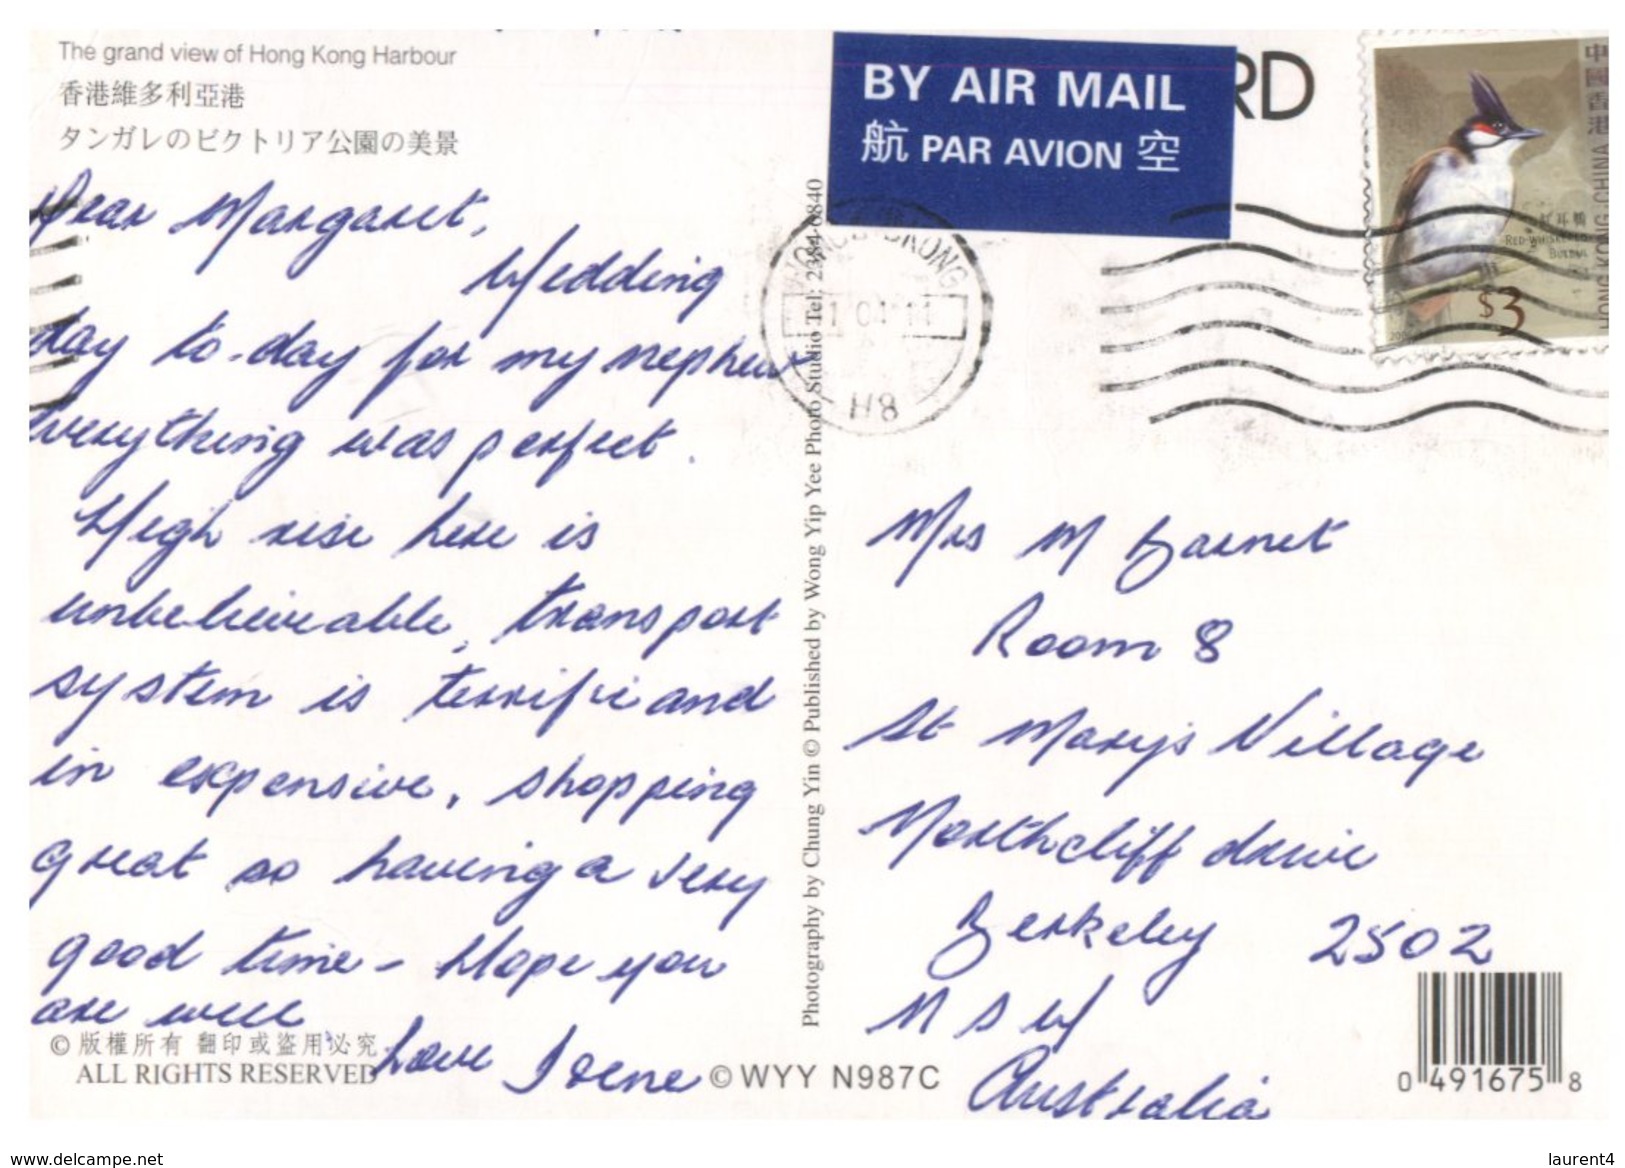 The grand view of Hong Kong Harbour
香港維多利亞港
タンガレのビクトリア公園の美景
Dear Margaret,
Wedding
day to-day for my nephew
everything was perfect.
High rise here is
unbelievable, transport
system is terrific and
in expensive, shopping
great so having a very
good time - Hope you
are well
love Irene
© 版權所有 翻印或盜用必究
ALL RIGHTS RESERVED
Photography by Chung Yin © Published by Wong Yip Yee Photo Studio Tel: 2384 6840
© WYY N987C
BY AIR MAIL
航 PAR AVION 空
RD
HONG KONG
04 14
H8
中國香港
HONG KONG, CHINA
紅耳鵯
RED-WHISKERED
BULBUL
$3
Mrs M Barnet
Room 8
St Mary's Village
Northcliff drive
Berkeley 2502
N S W
Australia
0 491675 8
www.delcampe.net
laurent4